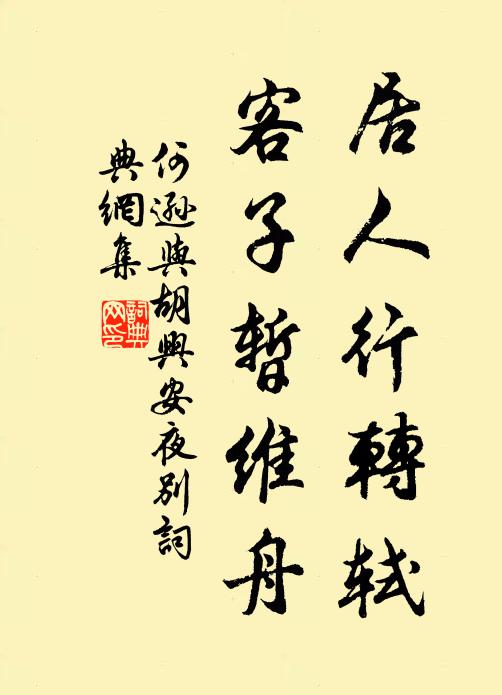 居人行轉軾
客子暫維舟
何遜與胡興安夜別詞
典網集
詞典網印